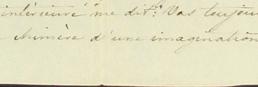 intérieure me dit: Vas toujou
chimère d'une imagination